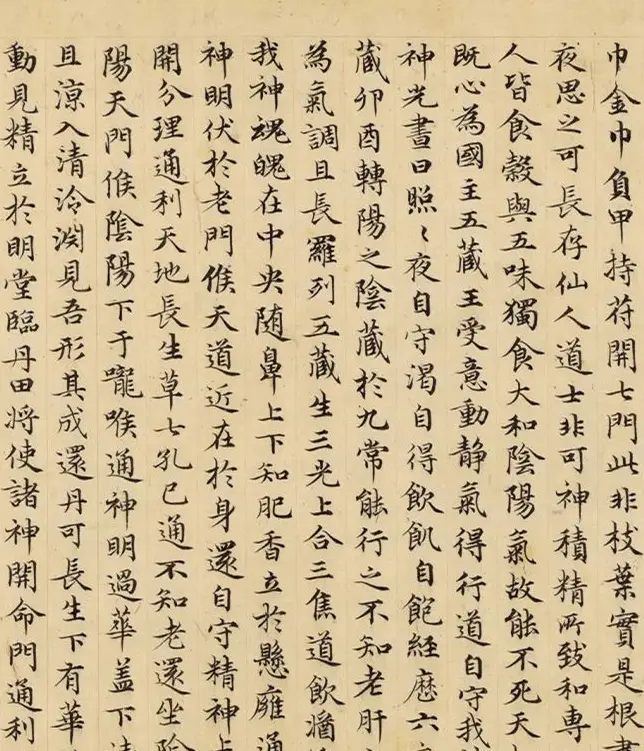 巾金巾負甲持苻開七門此非枝葉實是根晝
夜思之可長存仙人道士非可神積精所致和專
人皆食穀與五味獨食大和陰陽氣故能不死天
既心為國主五藏王受意動靜氣得行道自守我
神光晝日照〻夜自守渴自得飲飢自飽經歷六
藏卯酉轉陽之陰藏於九常能行之不知老肝
為氣調且長羅列五藏生三光上合三焦道飲
我神魂魄在中央随鼻上下知肥香立於懸廱通
神明伏於老門候天道近在於身還自守精神上
開分理通利天地長生草七孔已通不知老還坐陰
陽天門候陰陽下于嚨喉通神明過華盖下清
且涼入清泠渕見吾形其成還丹可長生下有華
動見精立於明堂臨丹田將使諸神開命門通利